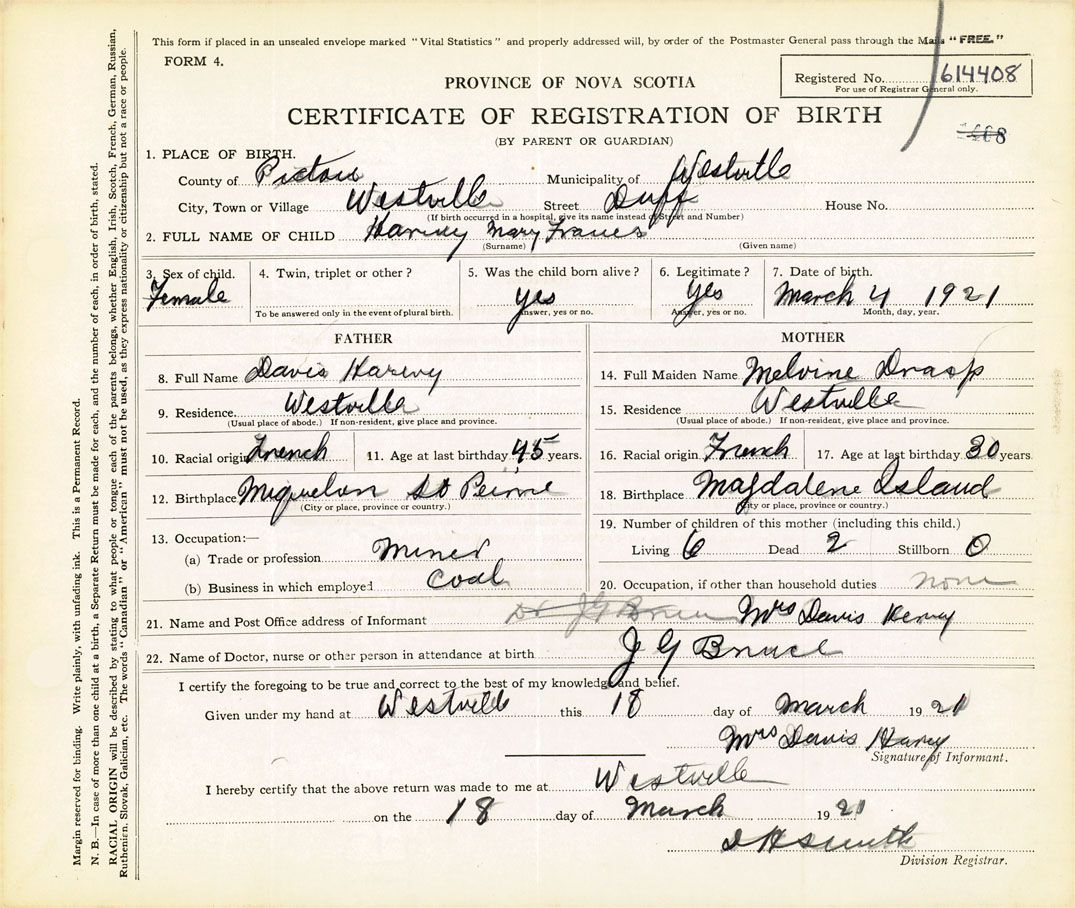 This form if placed in an unsealed envelope marked "Vital Statistics" and properly addressed will, by order of the Postmaster General pass through the Mails "FREE."
FORM 4.
Registered No. 614408
For use of Registrar General only.
PROVINCE OF NOVA SCOTIA
CERTIFICATE OF REGISTRATION OF BIRTH
(BY PARENT OR GUARDIAN)
1. PLACE OF BIRTH.
County of Pictou Municipality of Westville
City, Town or Village Westville Street Duff House No.
(If birth occurred in a hospital, give its name instead of Street and Number)
2. FULL NAME OF CHILD Harvey Mary Frances
(Surname) (Given name)
3. Sex of child. 4. Twin, triplet or other? 5. Was the child born alive? 6. Legitimate? 7. Date of birth.
Female yes yes March 4 1921
To be answered only in the event of plural birth. Answer, yes or no. Answer, yes or no. Month, day, year.
FATHER
8. Full Name Davis Harvey
9. Residence Westville
(Usual place of abode.) If non-resident, give place and province.
10. Racial origin French 11. Age at last birthday 45 years.
12. Birthplace Miquelon St Peirre
(City or place, province or country.)
13. Occupation:—
(a) Trade or profession Miner
(b) Business in which employed Coal
MOTHER
14. Full Maiden Name Melvine Drasp
15. Residence Westville
(Usual place of abode.) If non-resident, give place and province.
16. Racial origin French 17. Age at last birthday 30 years
18. Birthplace Magdalene Island
(City or place, province or country.)
19. Number of children of this mother (including this child.)
Living 6 Dead 2 Stillborn 0
20. Occupation, if other than household duties none
21. Name and Post Office address of Informant Dr J G Bruce Mrs Davis Hervey
22. Name of Doctor, nurse or other person in attendance at birth J G Bruce
I certify the foregoing to be true and correct to the best of my knowledge and belief.
Given under my hand at Westville this 18 day of March 1921
Mrs Davis Harvey
Signature of Informant.
I hereby certify that the above return was made to me at Westville
on the 18 day of March 1921
D H Smith
Division Registrar.
Margin reserved for binding. Write plainly, with unfading ink. This is a Permanent Record.
N. B.—In case of more than one child at a birth, a Separate Return must be made for each, and the number of each, in order of birth, stated.
RACIAL ORIGIN will be described by stating to what people or tongue each of the parents belongs, whether English, Irish, Scotch, French, German, Russian,
Ruthenian, Slovak, Galician, etc. The words "Canadian" or "American" must not be used, as they express nationality or citizenship but not a race or people.